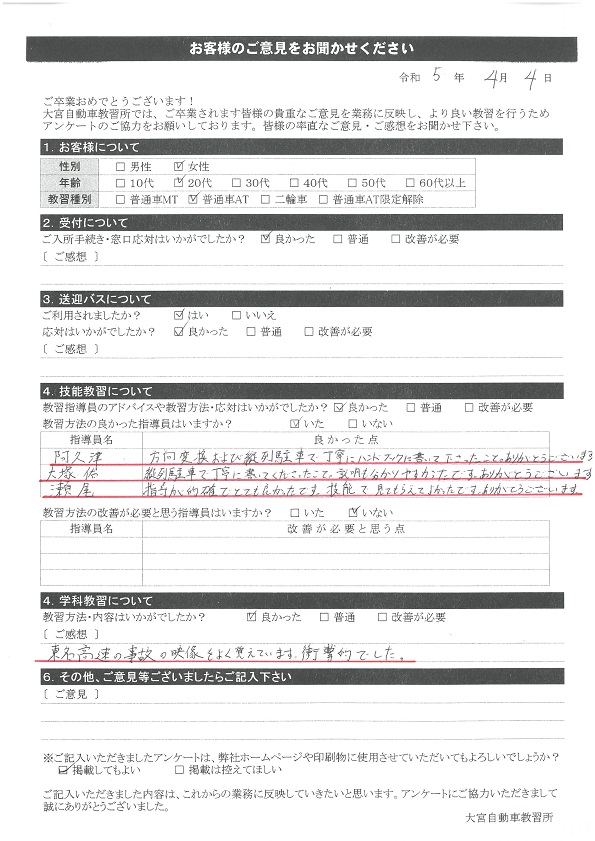 お客様のご意見をお聞かせください
令和 5 年 4月 4 日
ご卒業おめでとうございます！
大宮自動車教習所では、ご卒業されます皆様の貴重なご意見を業務に反映し、より良い教習を行うため
アンケートのご協力をお願いしております。皆様の率直なご意見・ご感想をお聞かせ下さい。
1. お客様について
性別 □ 男性 ☑ 女性
年齢 □ 10代 ☑ 20代 □ 30代 □ 40代 □ 50代 □ 60代以上
教習種別 □ 普通車MT ☑ 普通車AT □ 二輪車 □ 普通車AT限定解除
2. 受付について
ご入所手続き・窓口応対はいかがでしたか？ ☑ 良かった □ 普通 □ 改善が必要
〔 ご感想 〕
3. 送迎バスについて
ご利用されましたか？ ☑ はい □ いいえ
応対はいかがでしたか？ ☑ 良かった □ 普通 □ 改善が必要
〔 ご感想 〕
4. 技能教習について
教習指導員のアドバイスや教習方法・応対はいかがでしたか？ ☑ 良かった □ 普通 □ 改善が必要
教習方法の良かった指導員はいますか？ ☑ いた □ いない
指導員名 良かった点
阿久津 方向変換および縦列駐車で丁寧にハンドブックに書いて下さったこと。ありがとうございます
大塚佑 縦列駐車で丁寧に書いてくださったこと。説明も分かりやすかったです。ありがとうございます
瀬尾 指導が的確でとても良かったです。技能で見てもらえてよかったです。ありがとうございます
教習方法の改善が必要と思う指導員はいますか？ □ いた ☑ いない
指導員名 改善が必要と思う点
4. 学科教習について
教習方法・内容はいかがでしたか？ ☑ 良かった □ 普通 □ 改善が必要
〔 ご感想 〕
東名高速の事故の映像をよく覚えています。衝撃的でした。
6. その他、ご意見等ございましたらご記入下さい
〔 ご意見 〕
※ご記入いただきましたアンケートは、弊社ホームページや印刷物に使用させていただいてもよろしいでしょうか？
☑ 掲載してもよい □ 掲載は控えてほしい
ご記入いただきました内容は、これからの業務に反映していきたいと思います。アンケートにご協力いただきまして
誠にありがとうございました。
大宮自動車教習所